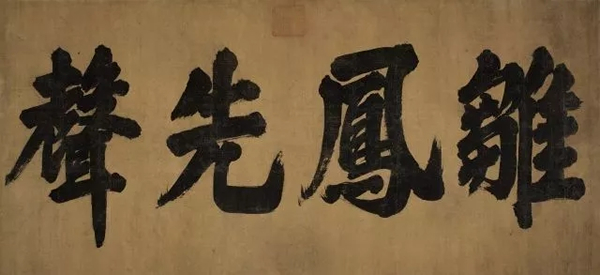 雛鳳先聲